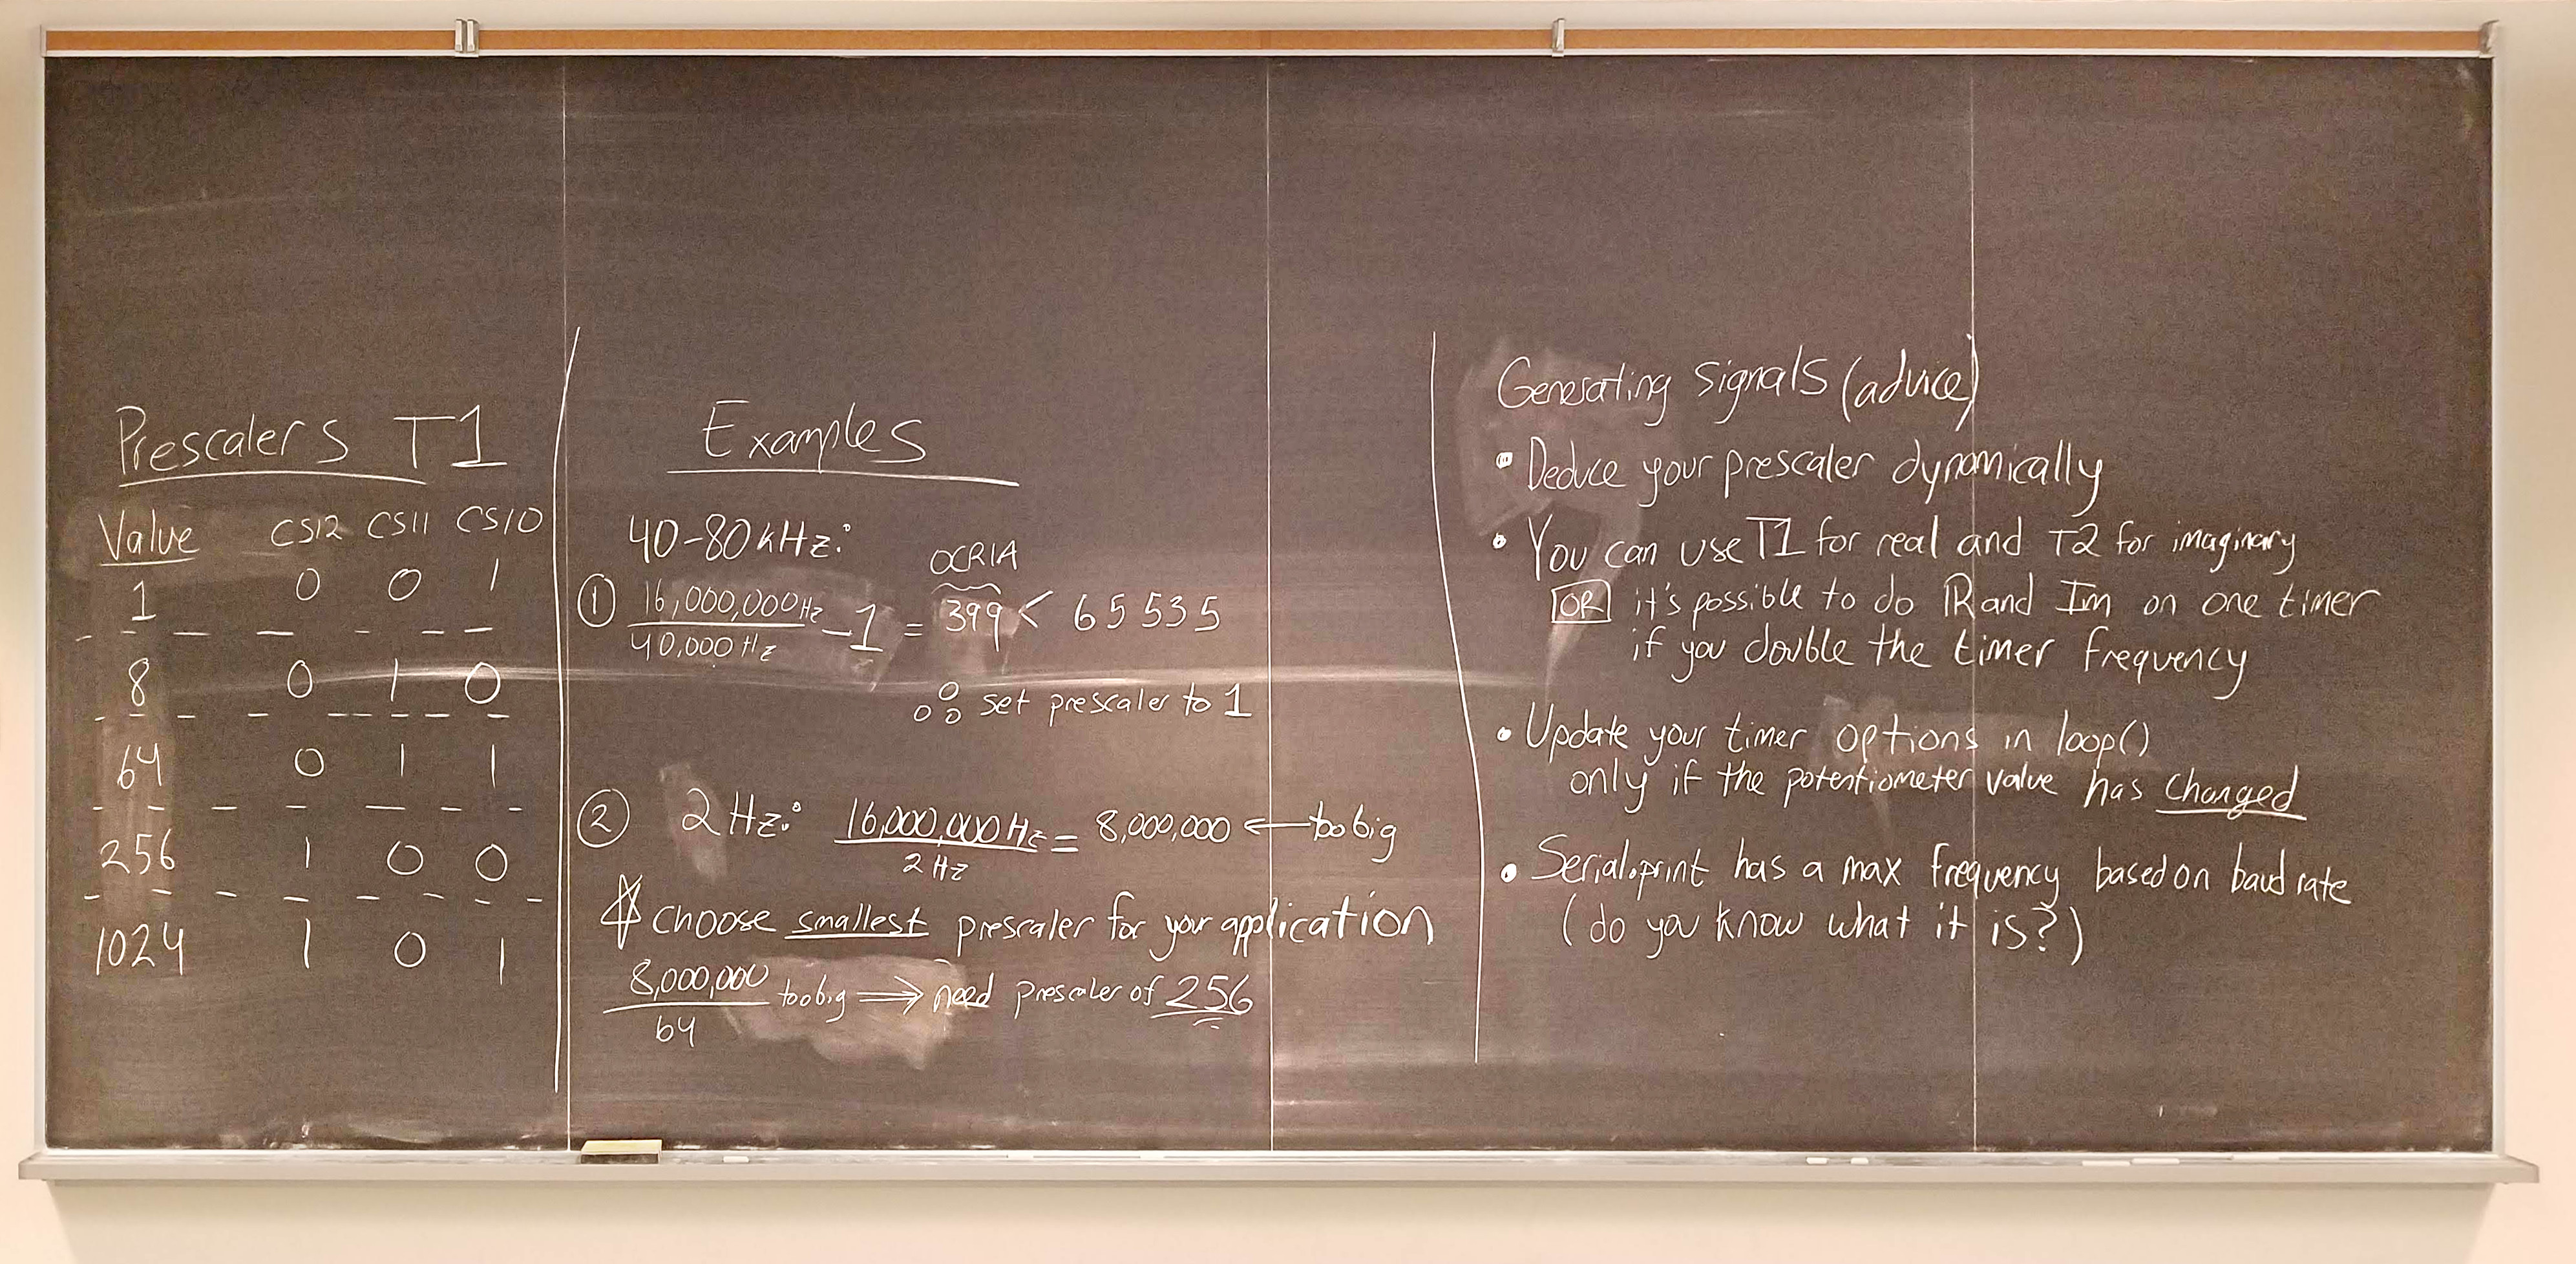 Prescalers T1
Value CS12 CS11 CS10
1 0 0 1
8 0 1 0
64 0 1 1
256 1 0 0
1024 1 0 1
Examples
40-80kHz:
OCR1A
① 16,000,000Hz / 40,000 Hz - 1 = 399 < 65535
∴ set prescaler to 1
② 2Hz: 16,000,000 Hz / 2 Hz = 8,000,000 ← too big
choose smallest prescaler for your application
8,000,000 / 64 too big ⟹ need prescaler of 256
Generating signals (advice)
• Deduce your prescaler dynamically
• You can use T1 for real and T2 for imaginary
OR it's possible to do IR and Im on one timer
if you double the timer frequency
• Update your timer options in loop()
only if the potentiometer value has changed
• Serial.print has a max frequency based on baud rate
(do you know what it is?)